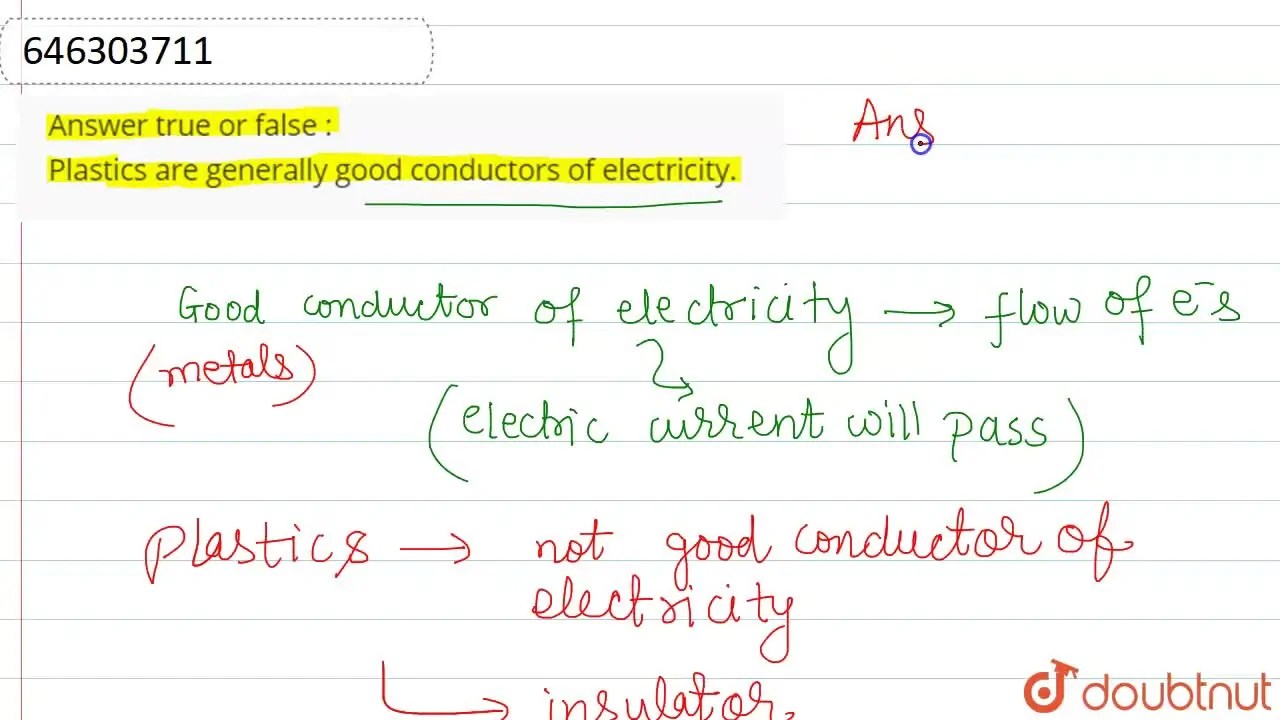 646303711
Answer true or false :
Ans
Plastics are generally good conductors of electricity.
Good conductor of electricity → flow of e⁻s
(metals)
(electric current will pass)
Plastics → not good conductor of
electricity
→ insulator.
doubtnut